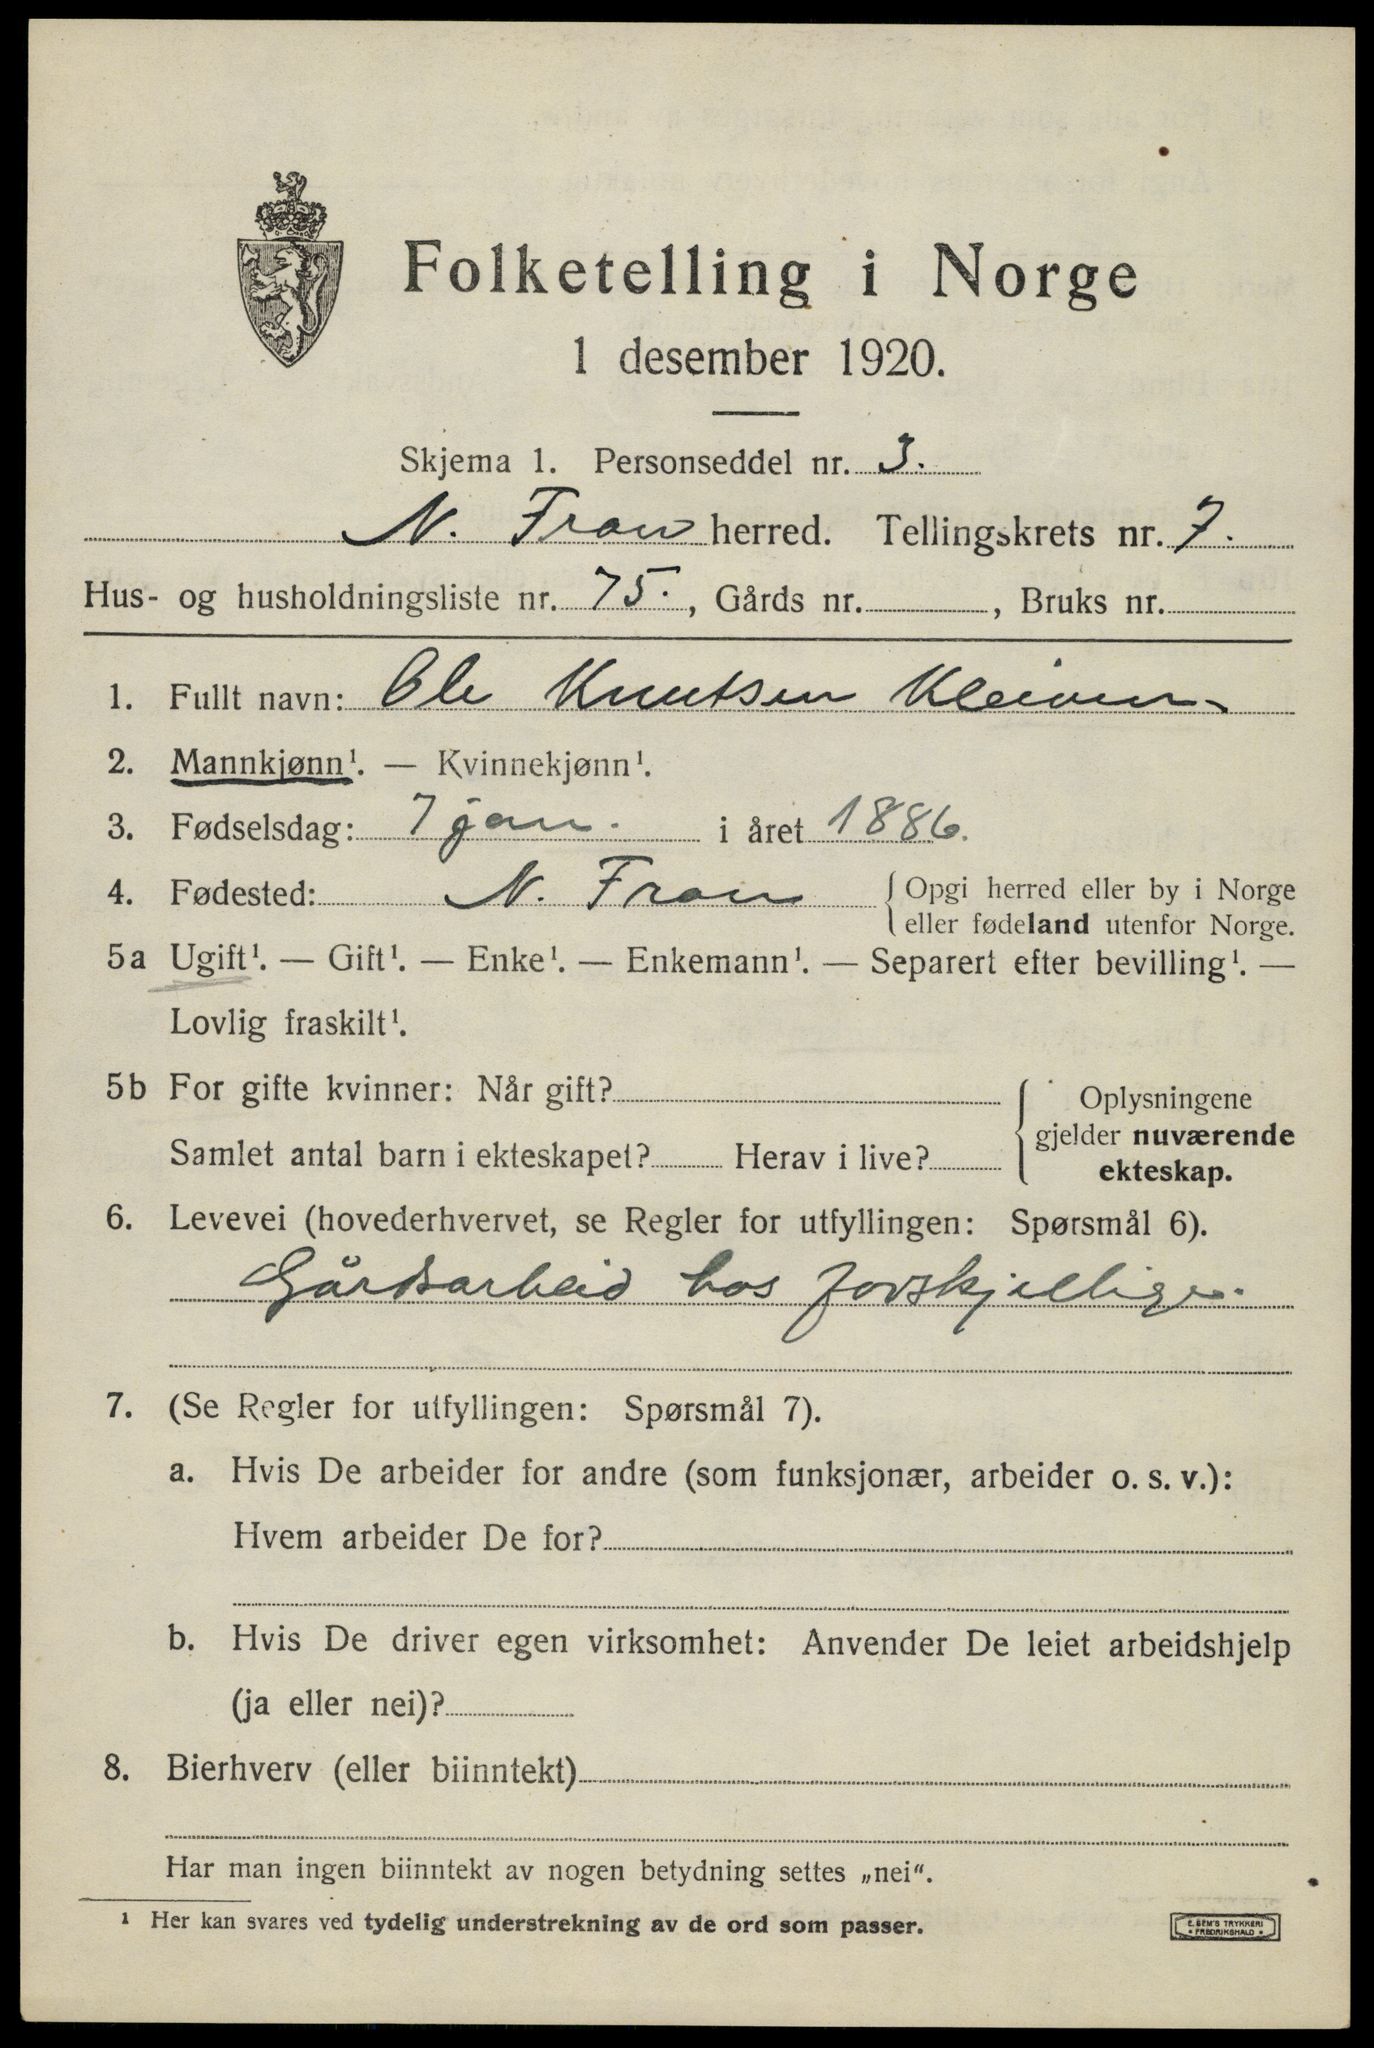 Folketelling i Norge
1 desember 1920.
Skjema 1. Personseddel nr. 3.
N. Fron herred. Tellingskrets nr. 7.
Hus- og husholdningsliste nr. 75., Gårds nr. , Bruks nr.
1. Fullt navn: Ole Knutsen Kleiven
2. Mannkjønn¹. — Kvinnekjønn¹.
3. Fødselsdag: 7 jan. i året 1886.
4. Fødested: N. Fron {Opgi herred eller by i Norge
eller fødeland utenfor Norge.
5a Ugift¹. — Gift¹. — Enke¹. — Enkemann¹. — Separert efter bevilling¹. —
Lovlig fraskilt¹.
5b For gifte kvinner: Når gift?
Samlet antal barn i ekteskapet? Herav i live?
Oplysningene
gjelder nuværende
ekteskap.
6. Levevei (hovederhvervet, se Regler for utfyllingen: Spørsmål 6).
Gårdsarbeid hos forskjellige.
7. (Se Regler for utfyllingen: Spørsmål 7).
a. Hvis De arbeider for andre (som funksjonær, arbeider o. s. v.):
Hvem arbeider De for?
b. Hvis De driver egen virksomhet: Anvender De leiet arbeidshjelp
(ja eller nei)?
8. Bierhverv (eller biinntekt)
Har man ingen biinntekt av nogen betydning settes „nei".
¹ Her kan svares ved tydelig understrekning av de ord som passer.
E. SEM'S TRYKKERI
• FREDRIKSHALD •